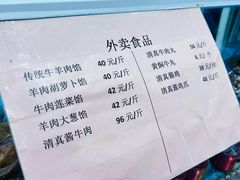 外卖食品
传统牛羊肉馅 40元/斤
羊肉胡萝卜馅 40元/斤
牛肉莲菜馅 42元/斤
羊肉大葱馅 42元/斤
清真酱牛肉 96元/斤
清真牛肉丸 56元/斤
黄焖牛丸 6元/个
清真酱鸡 38元/斤
清真酱鸡爪